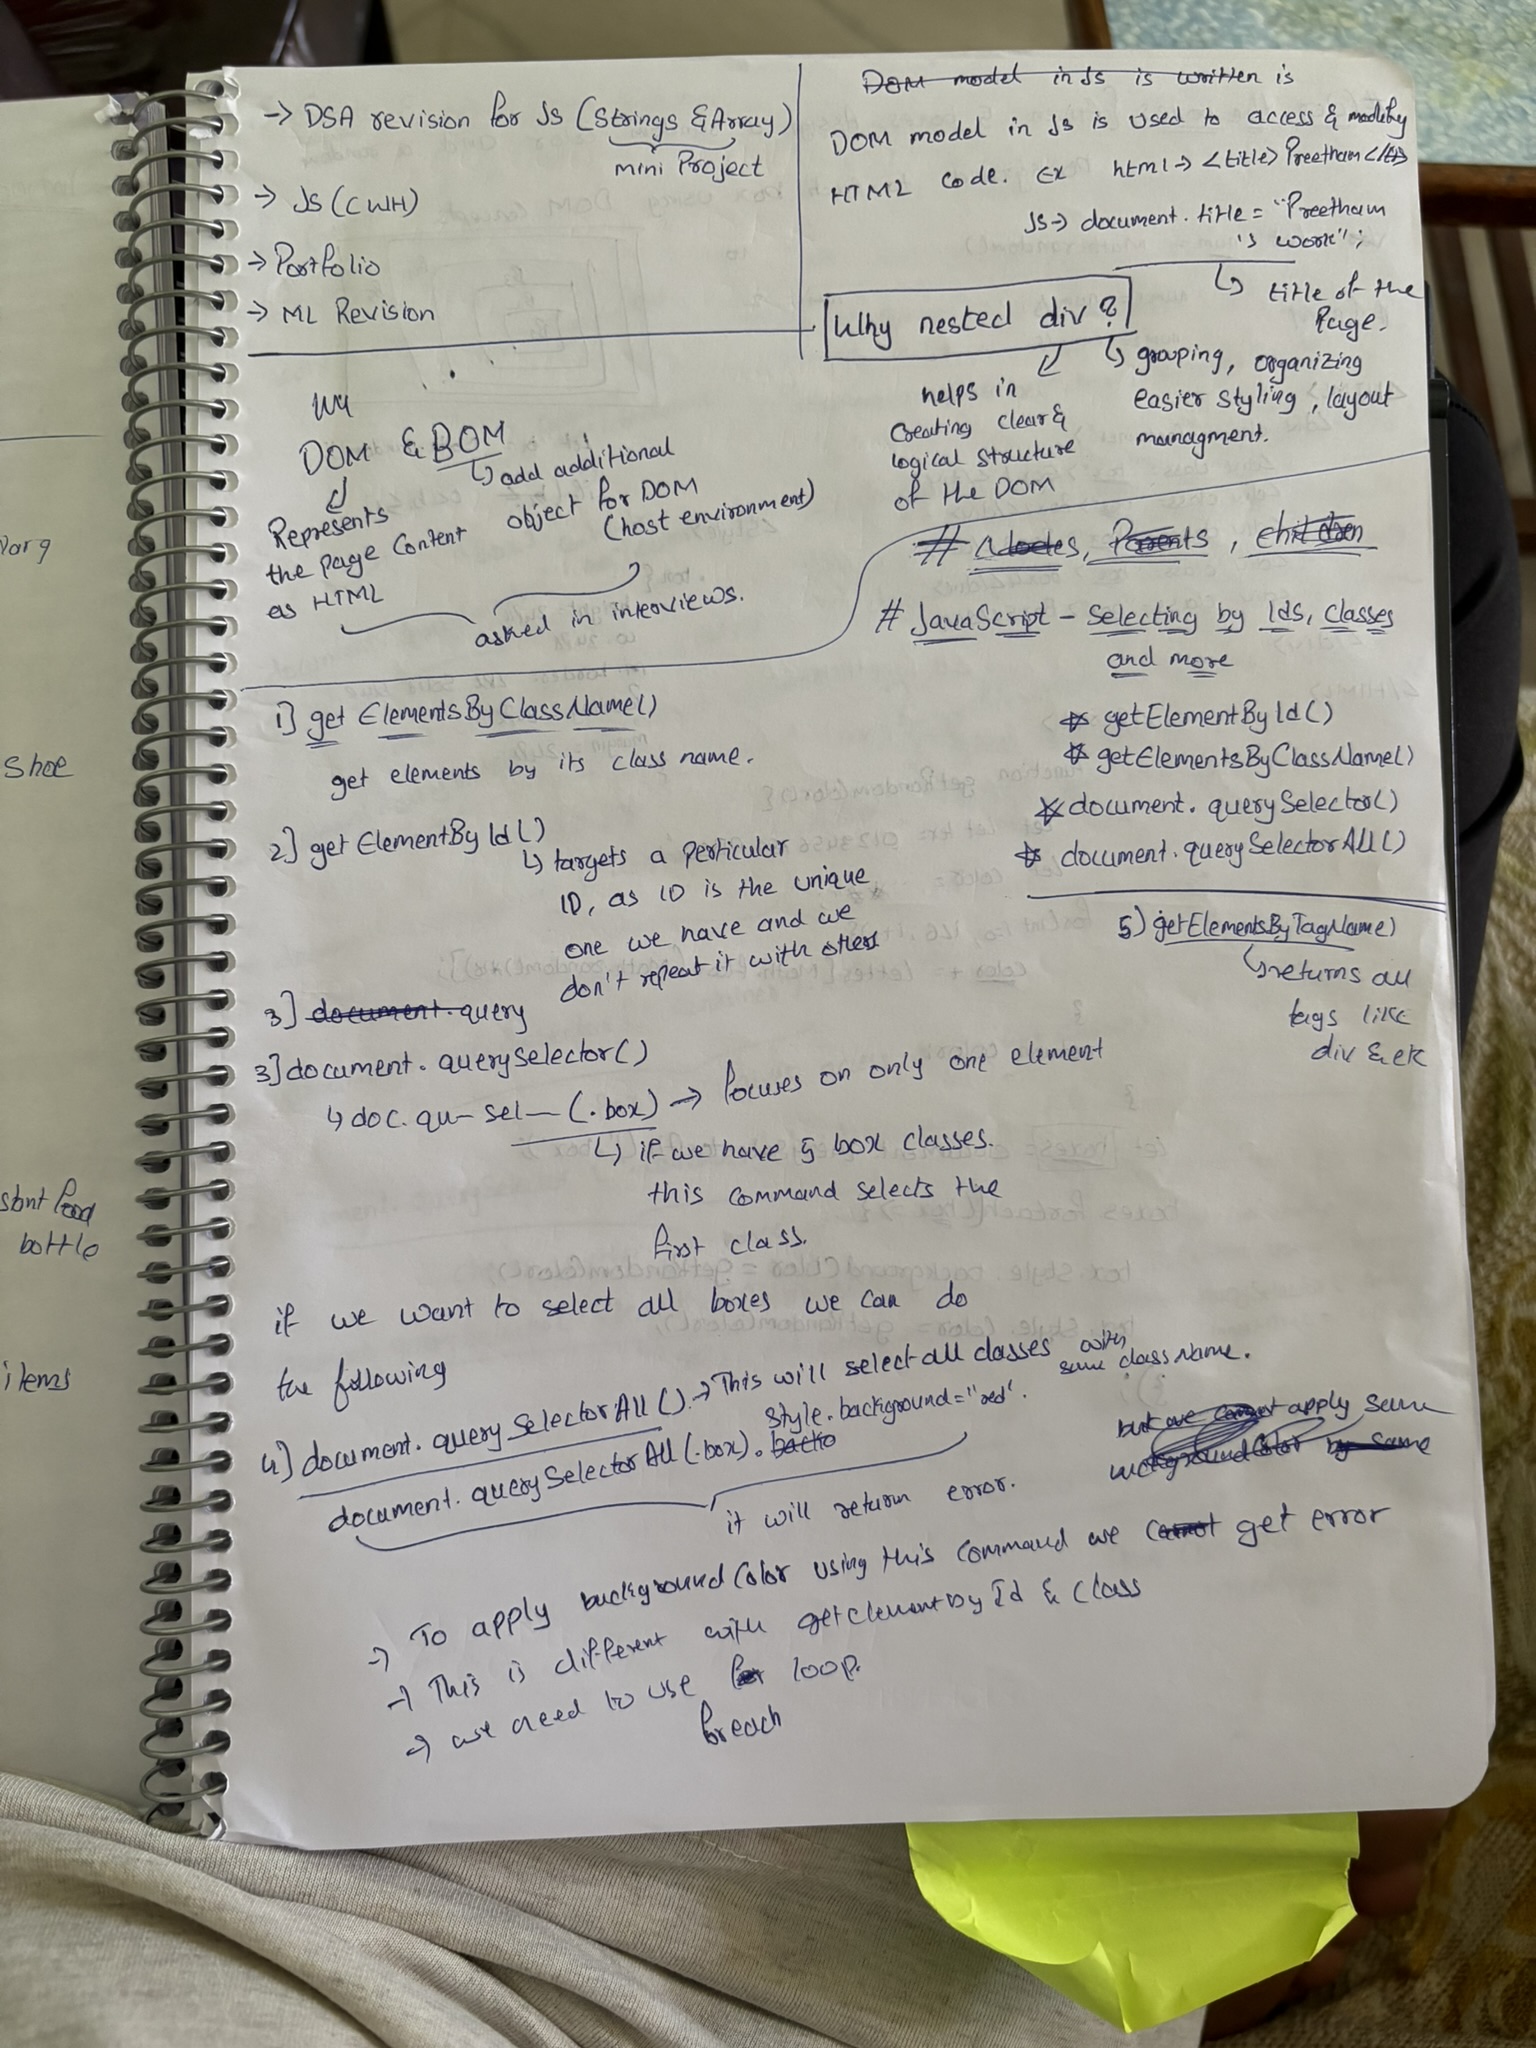 → DSA revision for Js (Strings & Array)
mini Project
→ JS (CWH)
→ Portfolio
→ ML Revision
DOM model in Js is written is
DOM model in Js is used to access & modifying
HTML code. Ex html → <title> Preetham </
Js → document.title = "Preetham
's work";
↳ title of the
Page.
Why nested div?
helps in
Creating clear &
logical structure
of the DOM
↳ grouping, organizing
easier styling, layout
managment.
DOM & BOM
Represents
the page content
as HTML
↳ add additional
object for DOM
(host environment)
asked in interviews.
# Nodes, Parents, children
# JavaScript - Selecting by Ids, classes
and more
* getElementById()
* getElementsByClassName()
* document.querySelector()
* document.querySelectorAll()
1] get ElementsByClassName()
get elements by its class name.
2] get ElementById()
↳ targets a perticular
ID, as ID is the unique
one we have and we
don't repeat it with others
3] document.query
3] document.querySelector()
↳ doc. qu- sel- (.box) → focuses on only one element
↳ if we have 5 box classes.
this command selects the
first class.
5) getElementsByTagName)
↳ returns all
tags like
div & etc
if we want to select all boxes we can do
the following
4] document.querySelectorAll(). → This will select all classes with
same class Name.
document.querySelectorAll(.box). style.background="red".
it will return error.
but we cannot apply same
backgroundColor by same
→ To apply backgroundColor using this command we cannot get error
→ This is different with getElementById & Class
→ we need to use for loop.
foreach
Shoe
bottle
items